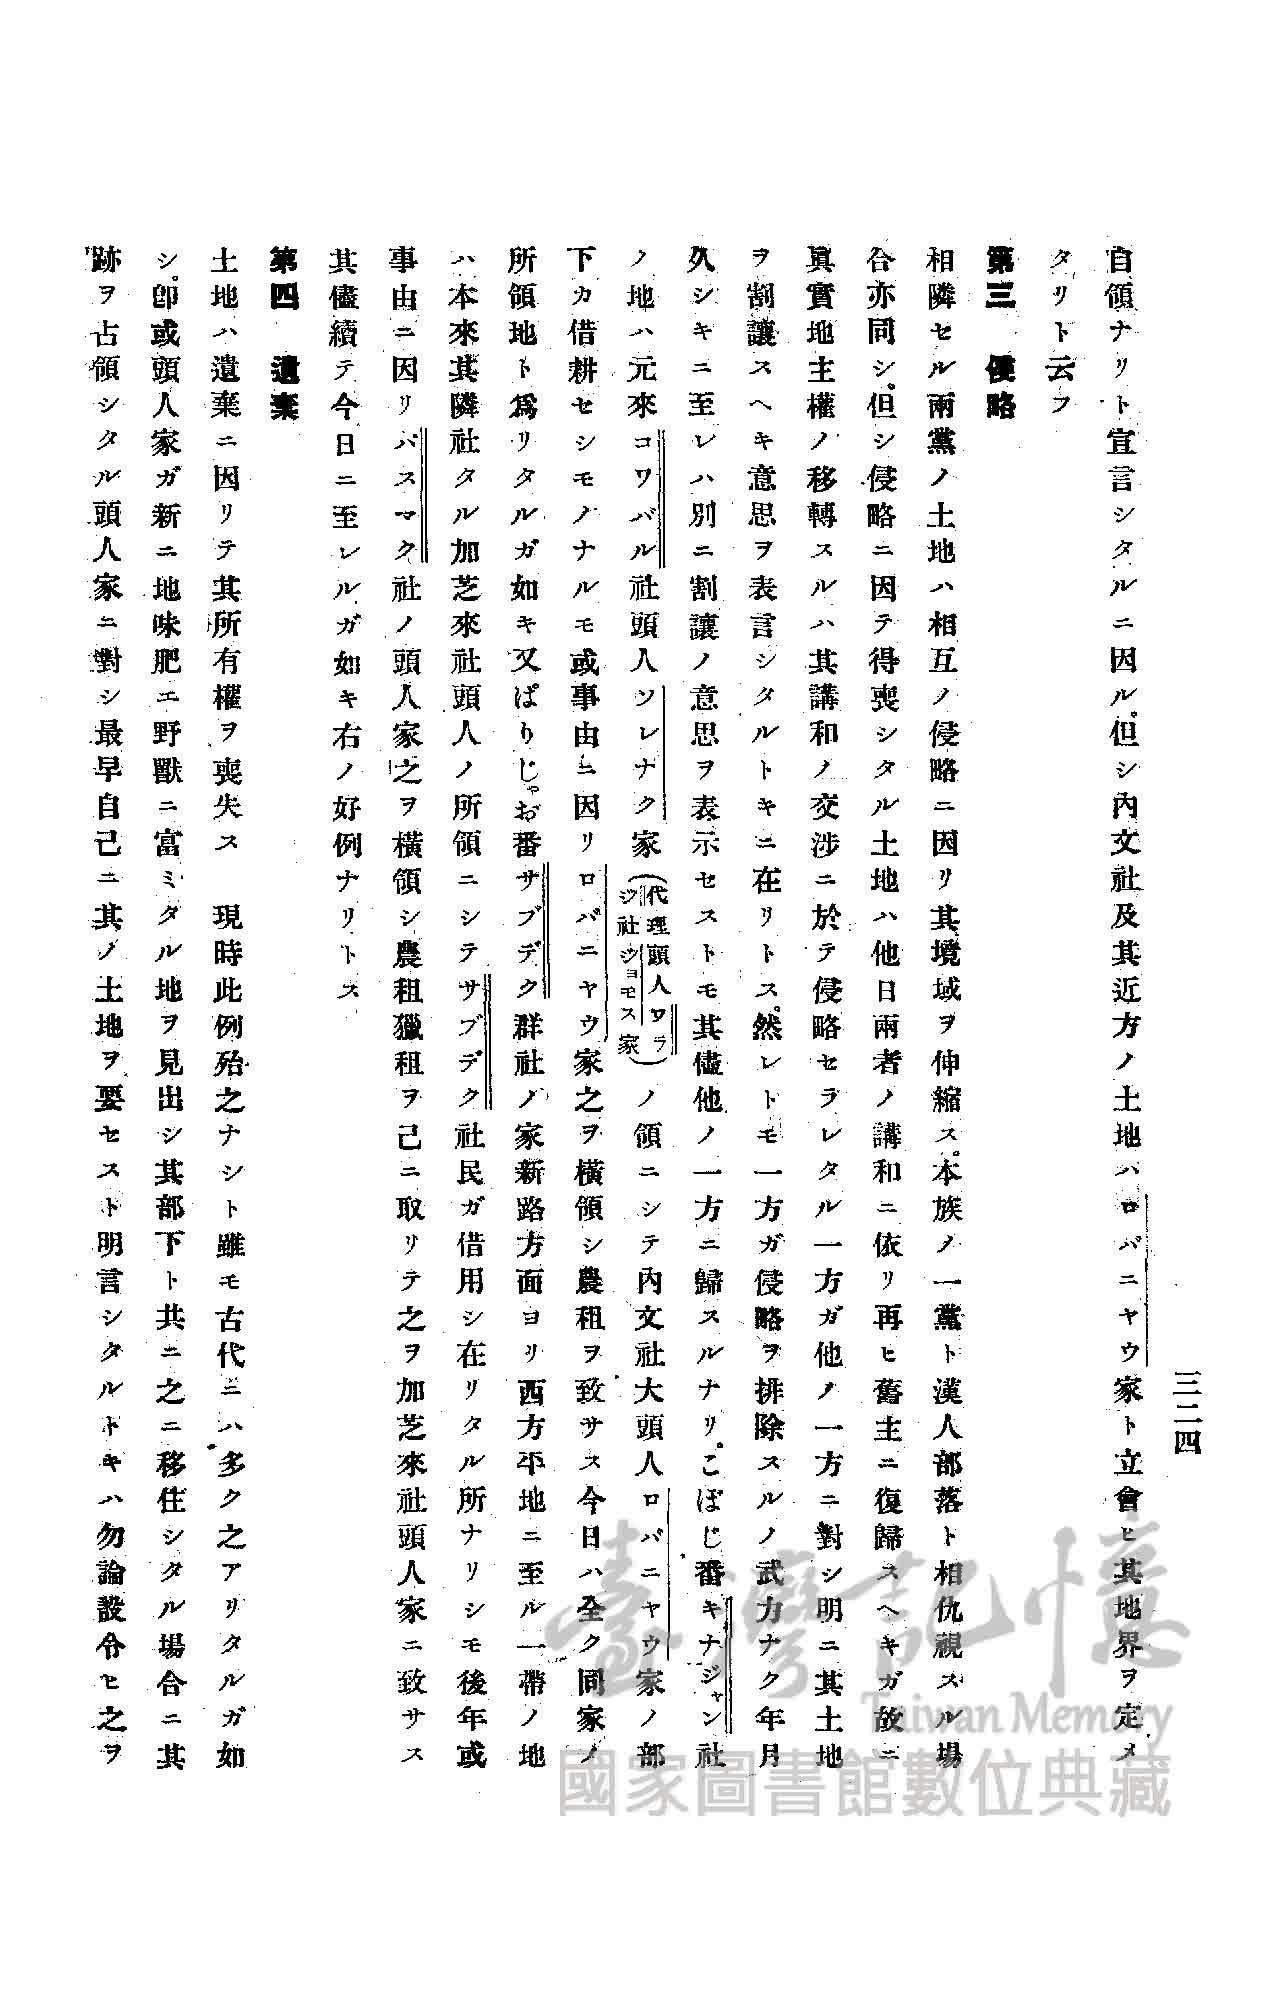 三二四
自領ナリト宣言シタルニ因ル。但シ內文社及其近方ノ土地ハロバニヤウ家ト立會ヒ其地界ヲ定メ
タリト云フ
第三　侵略
相隣セル兩黨ノ土地ハ相互ノ侵略ニ因リ其境域ヲ伸縮ス。本族ノ一黨ト漢人部落ト相仇視スル場
合亦同シ。但シ侵略ニ因テ得喪シタル土地ハ他日兩者ノ講和ニ依リ再ヒ舊主ニ復歸スヘキガ故ニ
眞實地主權ノ移轉スルハ其講和ノ交涉ニ於テ侵略セラレタル一方ガ他ノ一方ニ對シ明ニ其土地
ヲ割讓スヘキ意思ヲ表言シタルトキニ在リトス。然レトモ一方ガ侵略ヲ排除スルノ武力ナク年月
久シキニ至レハ別ニ割讓ノ意思ヲ表示セストモ其儘他ノ一方ニ歸スルナリ。こぼじ番キナジャン社
ノ地ハ元來コワバル社頭人ソレナク家(代理頭人ワラジ社ジョモス家)ノ領ニシテ內文社大頭人ロバニヤウ家ノ部
下カ借耕セシモノナルモ或事由ニ因リロバニヤウ家之ヲ橫領シ農租ヲ致サス今日ハ全ク同家ノ
所領地ト爲リタルガ如キ又ぱりじゃお番サブデク群社ノ家新路方面ヨリ西方平地ニ至ル一帶ノ地
ハ本來其隣社タル加芝來社頭人ノ所領ニシテサブデク社民ガ借用シ在リタル所ナリシモ後年或
事由ニ因リバスマク社ノ頭人家之ヲ橫領シ農租獵租ヲ己ニ取リテ之ヲ加芝來社頭人家ニ致サス
其儘續テ今日ニ至レルガ如キ右ノ好例ナリトス
第四　遺棄
土地ハ遺棄ニ因リテ其所有權ヲ喪失ス　現時此例殆之ナシト雖モ古代ニハ多ク之アリタルガ如
シ。卽或頭人家ガ新ニ地味肥エ野獸ニ富ミタル地ヲ見出シ其部下ト共ニ之ニ移住シタル場合ニ其
跡ヲ占領シタル頭人家ニ對シ最早自己ニ其ノ土地ヲ要セスト明言シタルトキハ勿論設令ヒ之ヲ
臺灣記憶
Taiwan Memory
國家圖書館數位典藏